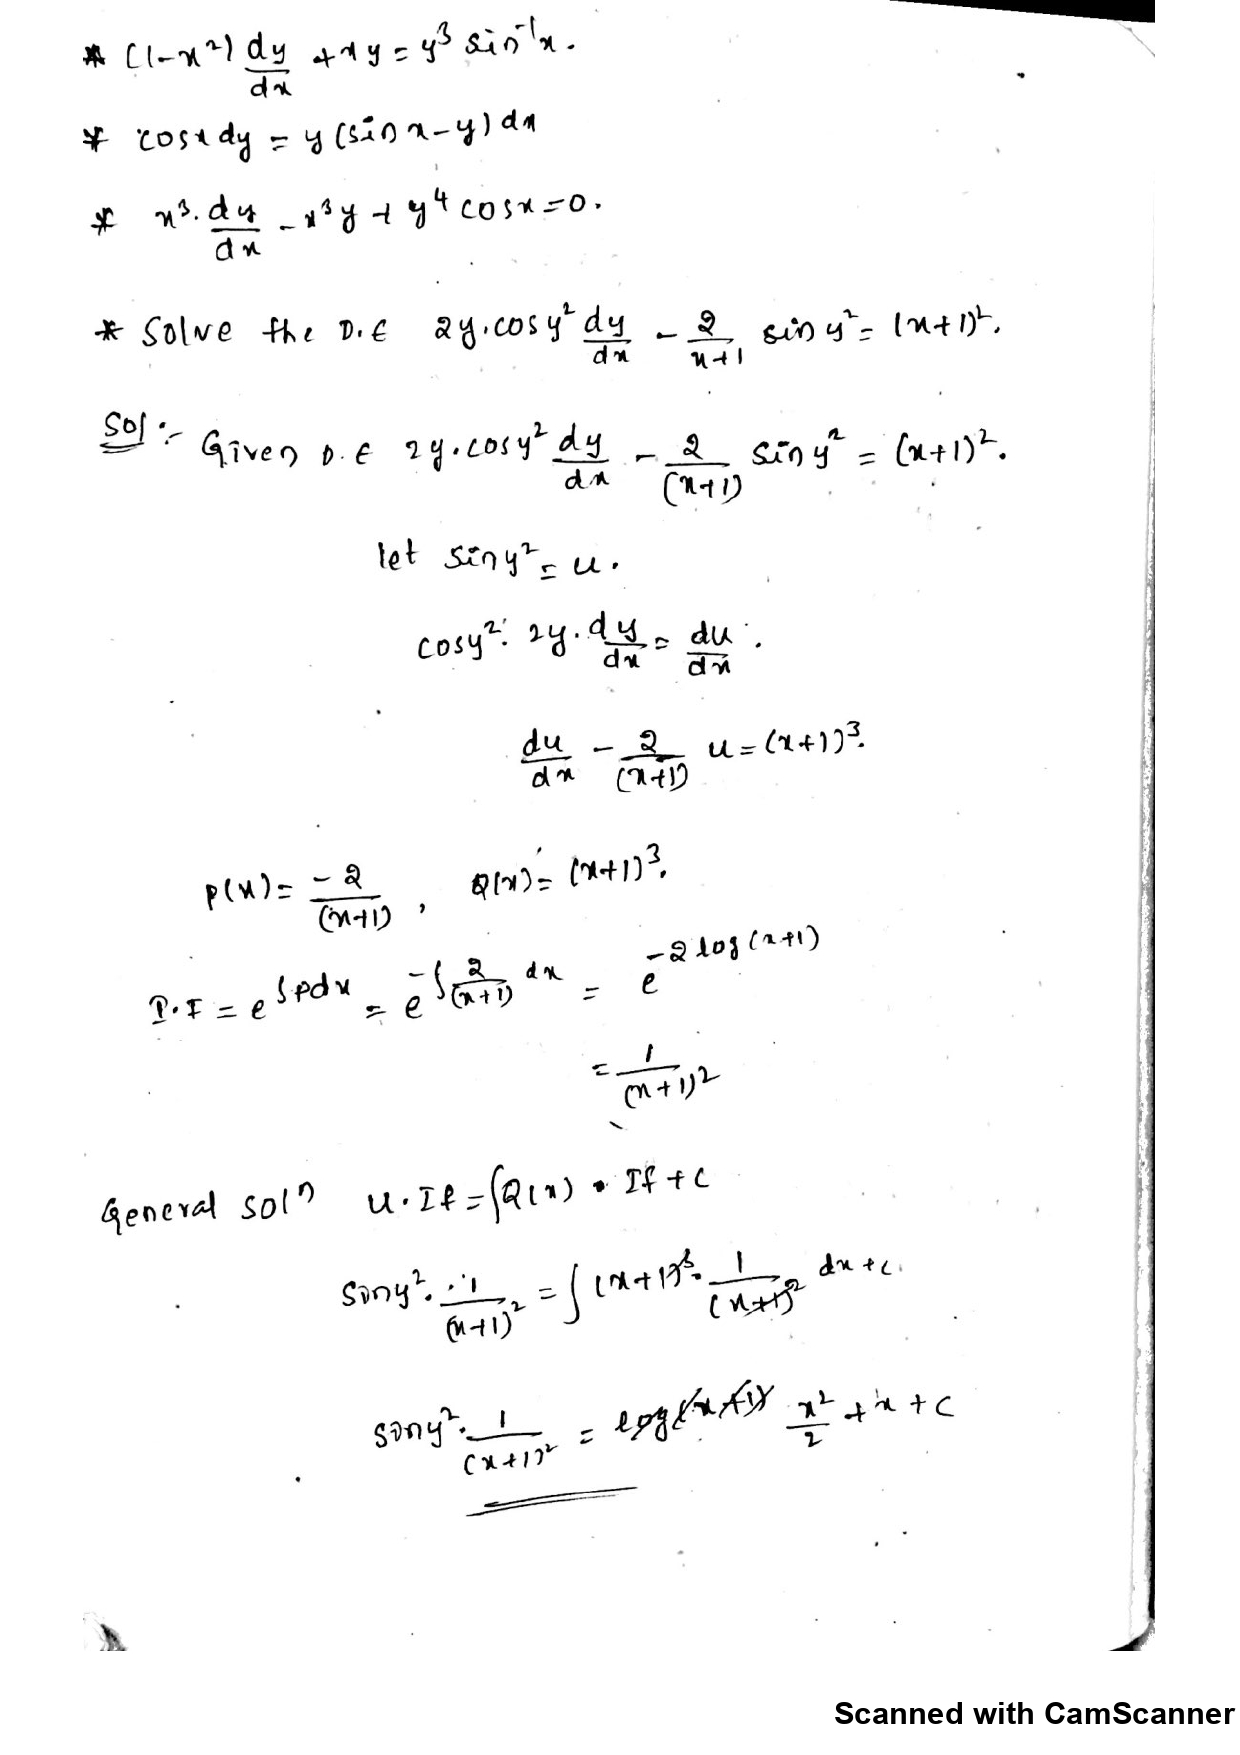 * (1-x²) dy/dx + xy = y³ sin⁻¹x.
* cosx dy = y (sin x - y) dx
* x³. dy/dx - x³y + y⁴ cosx = 0.
* Solve the D.E 2y.cosy² dy/dx - 2/x+1 sin y² = (x+1)².
Sol:- Given D.E 2y.cosy² dy/dx - 2/(x+1) sin y² = (x+1)².
let siny² = u.
cosy². 2y. dy/dx = du/dx.
du/dx - 2/(x+1) u = (x+1)³.
p(x) = -2/(x+1) , Q(x) = (x+1)³.
I.F = e^∫pdx = e^-∫2/(x+1) dx = e^-2log(x+1)
= 1/(x+1)²
General solⁿ u.If = ∫Q(x) • If + c
siny². 1/(x+1)² = ∫ (x+1)³. 1/(x+1)² dx + c.
siny². 1/(x+1)² = log(x+1) x²/2 + x + c
Scanned with CamScanner